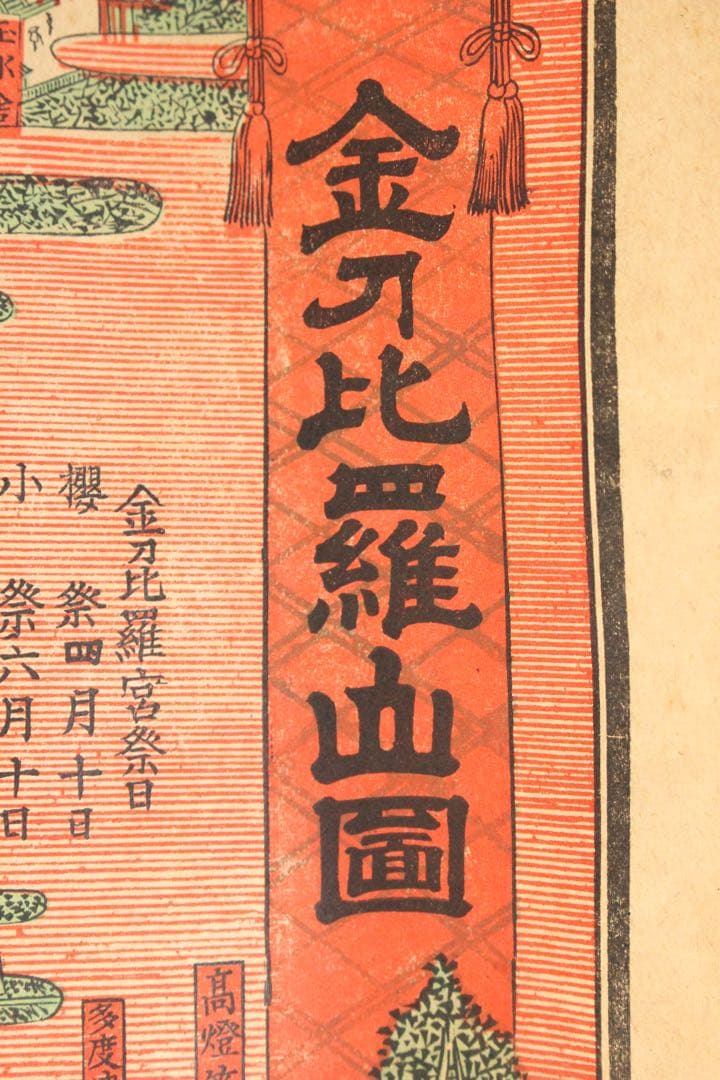 金刀比羅山圖
金刀比羅宮祭日
櫻祭四月十日
小祭六月十日
高燈
多度